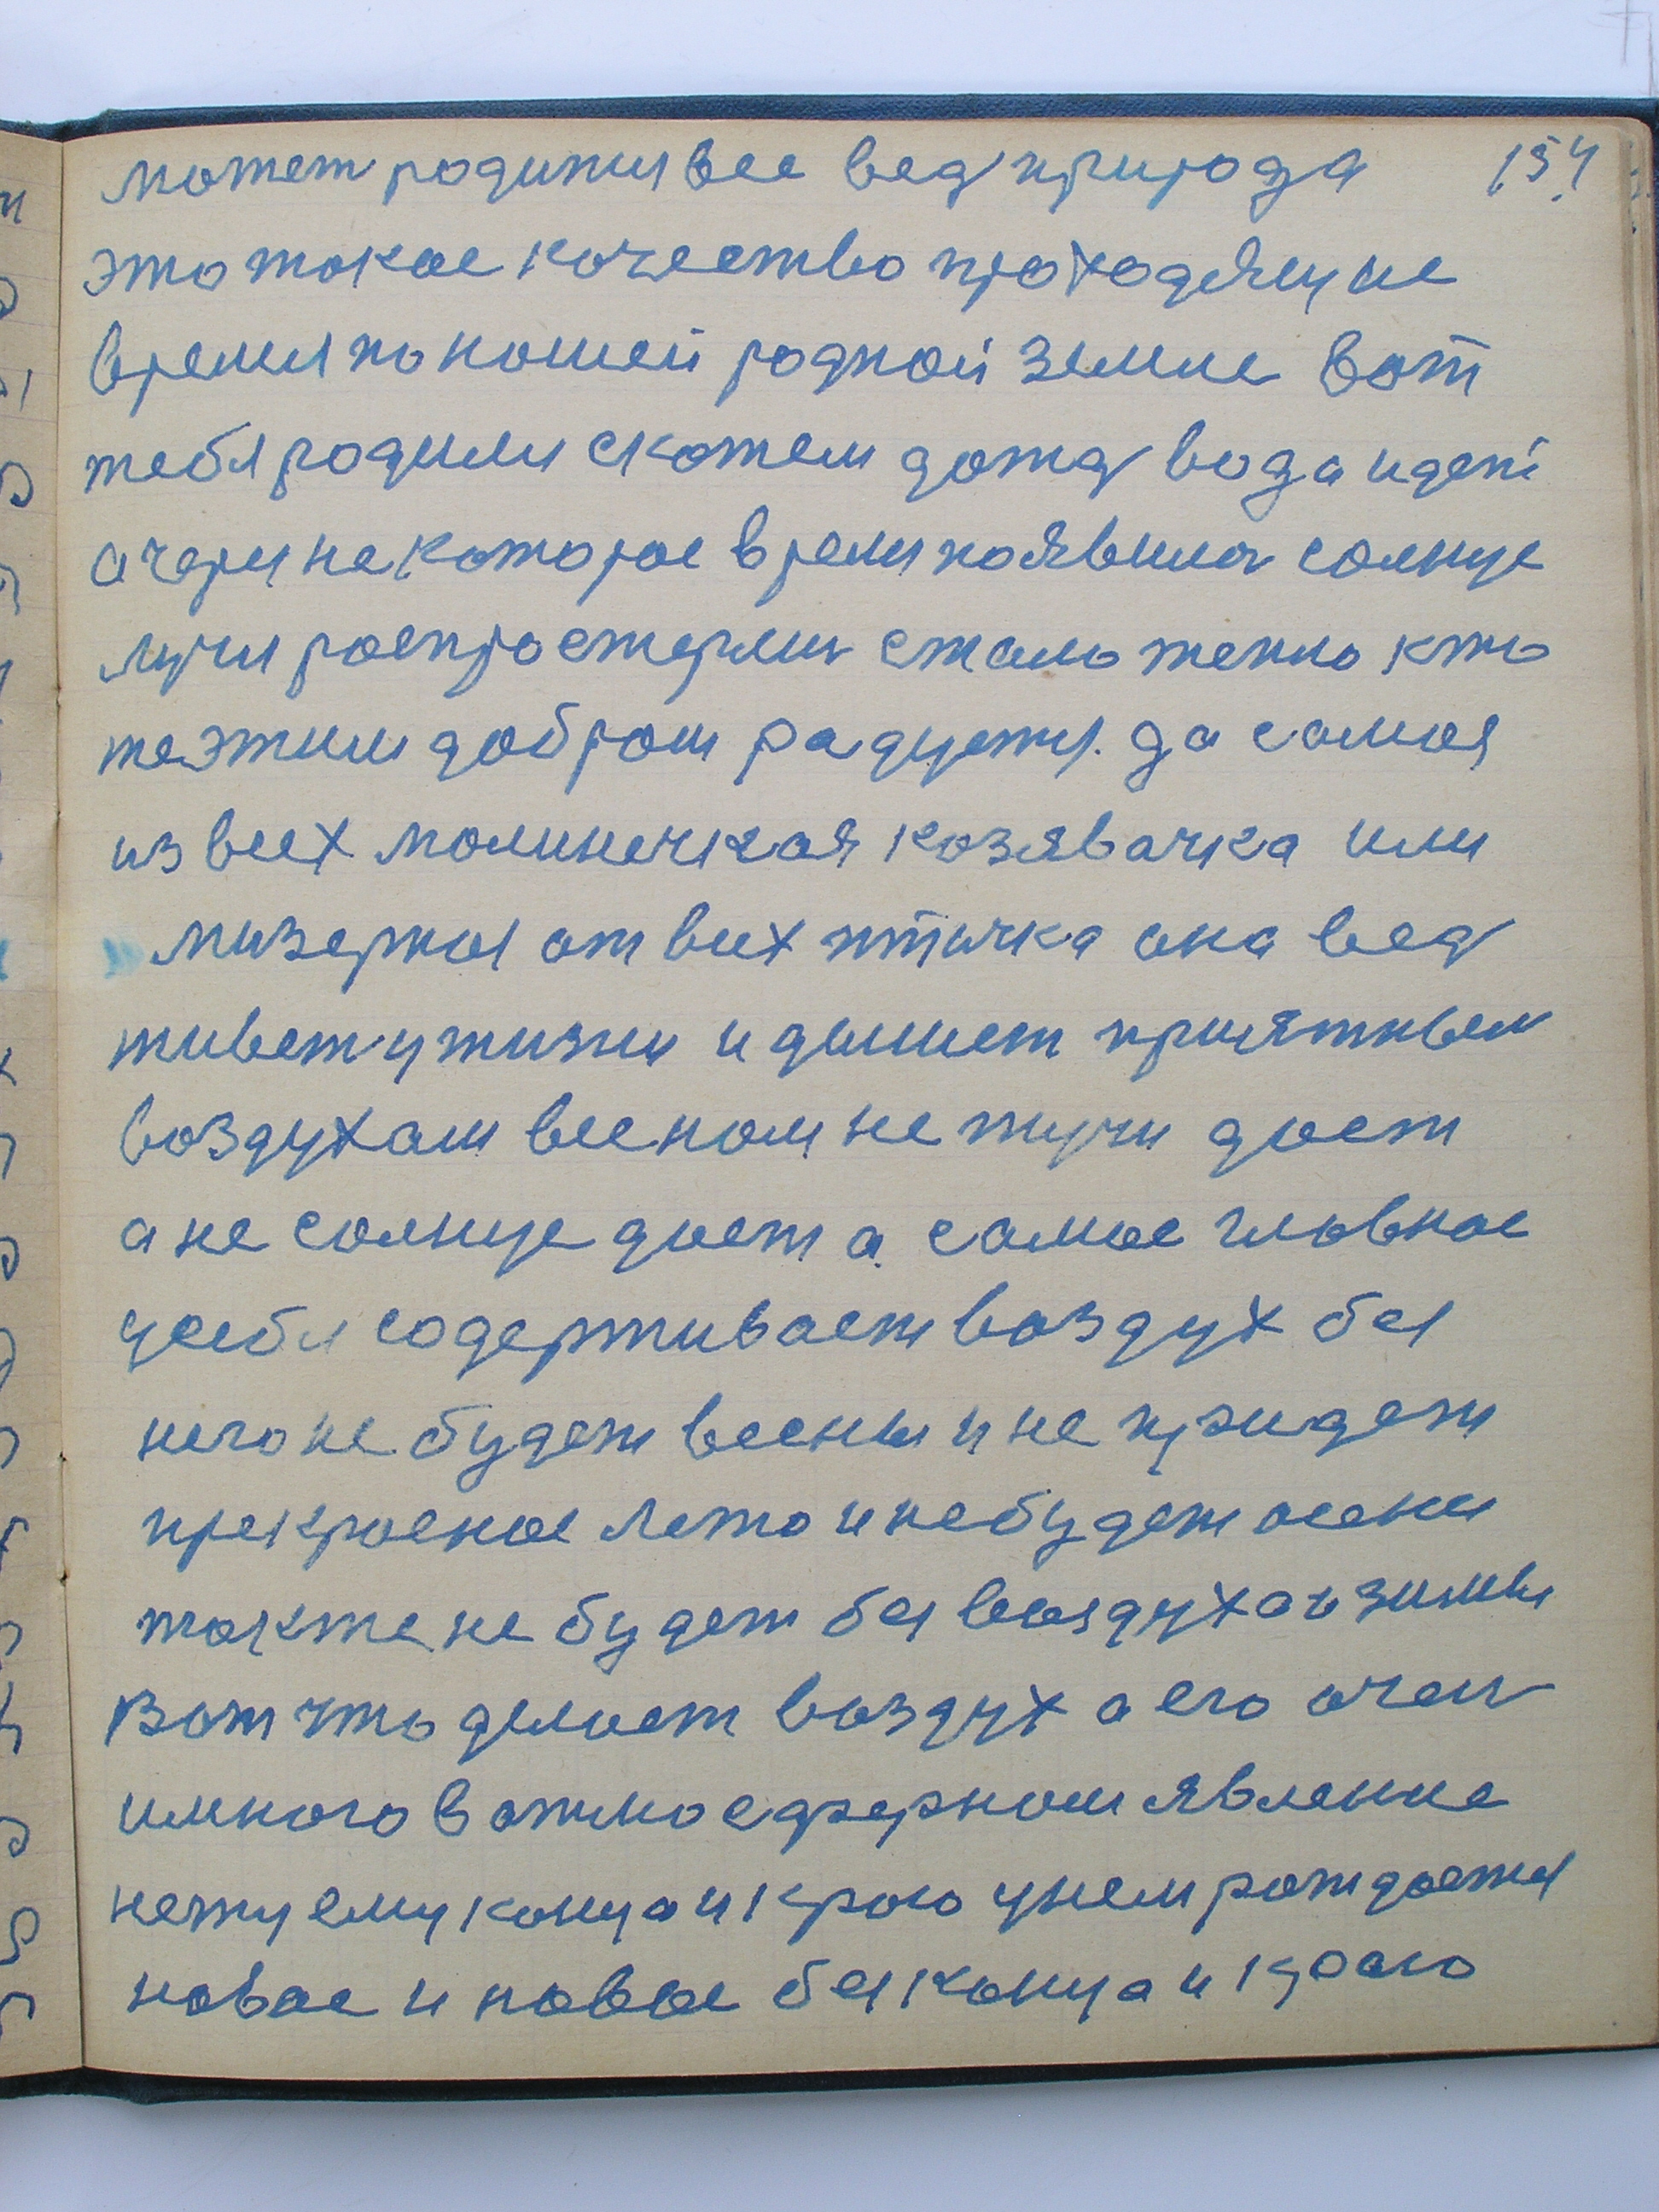 может родится все вед природа 154
это такое качество проходящие
время по нашей родной земле вот
тебя родили скажем дожд вода идет
а через некоторое время появилось солнце
лучи распростерлись стало тепло кто
же этим добром радуется. да самоя
из всех малинечкая козявачка или
мизерная от всех птичка она вед
живет у жизни и дышет приятным
воздухам весном не тучи дает
а не солнце дает а самое главное
усебя содерживает воздух без
него не будет весны и не придет
прекрасное лето и небудет осени
также не будет без воздуха и зимы
Вот что делает воздух а его очен
и много в атмосферном явление
нету ему конца и краю унем рождается
новое и новое без конца и краю